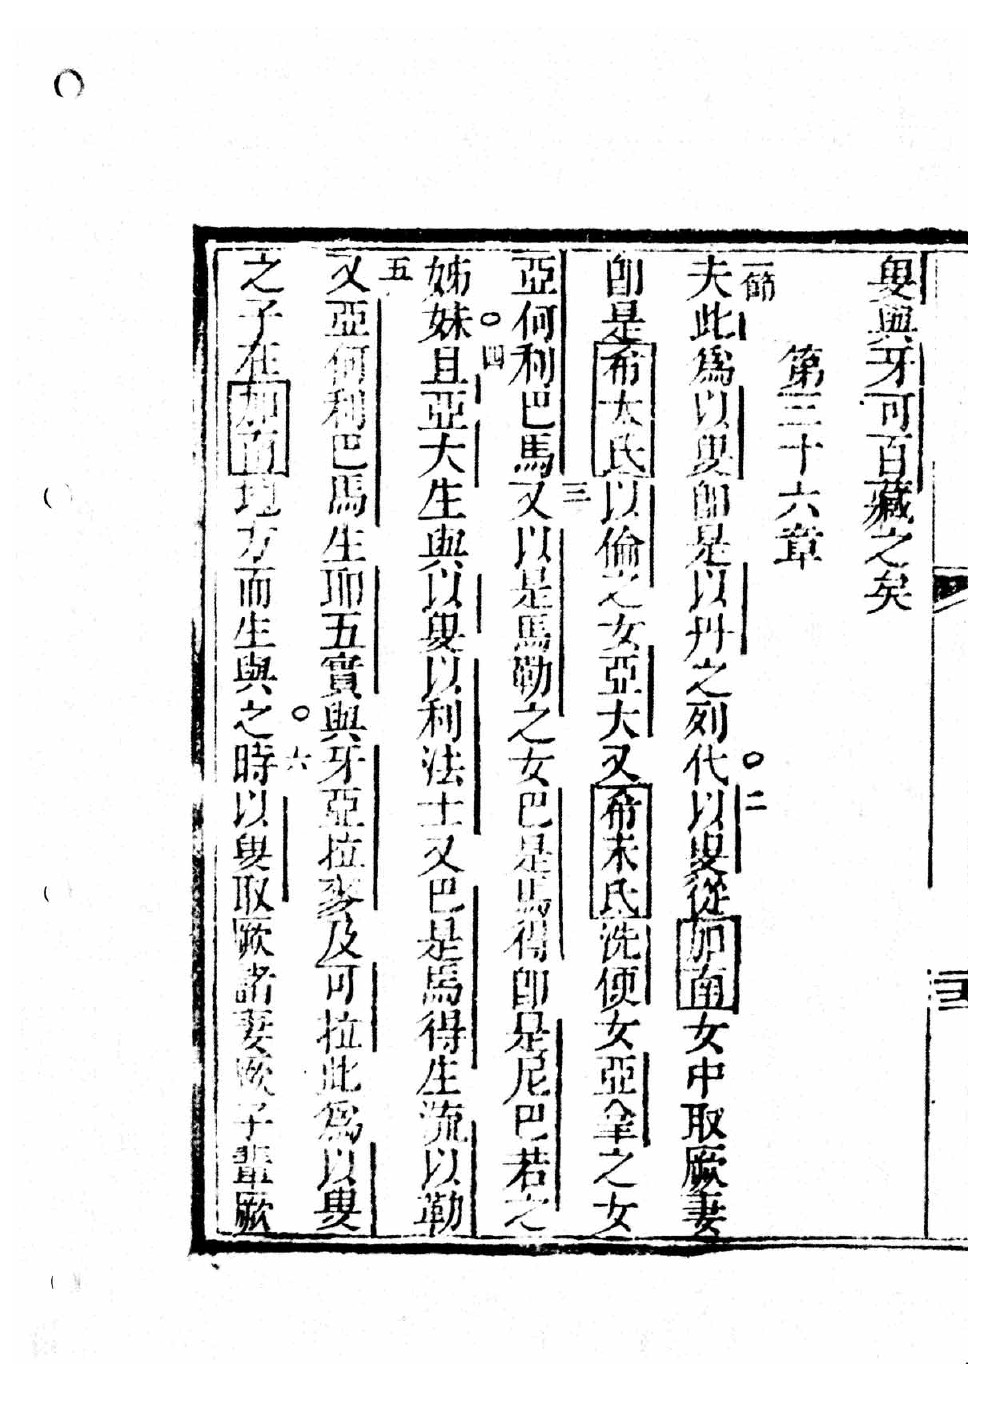 叟與牙可百藏之矣
第三十六章
一節
夫此為以叟即是以丹之列代○二以叟從加南女中取厥妻
即是希太氏以倫之女亞大又希未氏洗便女亞拿之女
亞何利巴馬三又以是馬勒之女巴是馬得即是尼巴若之
姊妹○四且亞大生與以叟以利法士又巴是馬得生流以勒
五又亞何利巴馬生耶五實與牙亞拉麥及可拉此為以叟
之子在加南地方而生與之時○六以叟取厥諸妻厥子輩厥